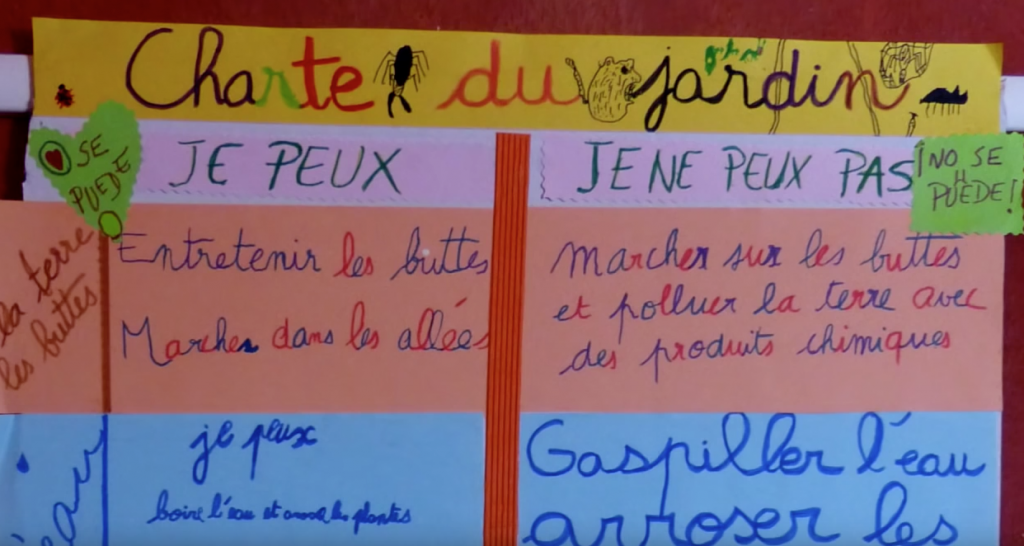 Charte du jardin
SE
PUEDE
JE PEUX
JE NE PEUX PAS
¡NO SE
PUEDE!
la terre
les buttes
Entretenir les buttes
Marcher dans les allées
Marcher sur les buttes
et polluer la terre avec
des produits chimiques
je peux
boire l'eau et arroser les plantes
Gaspiller l'eau
arroser les